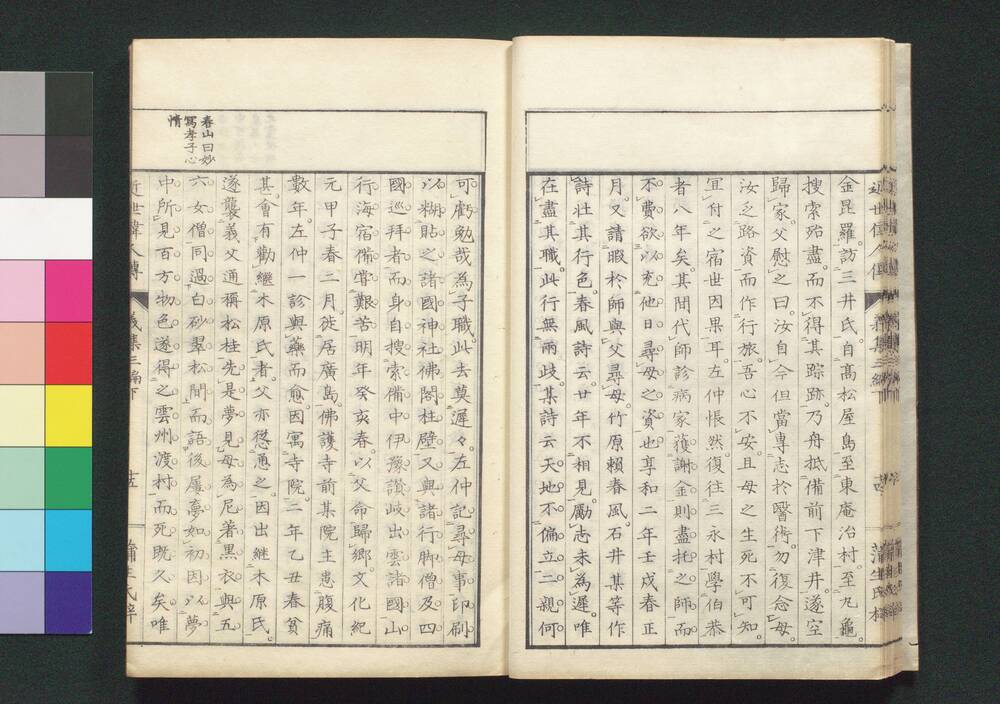 金昆羅。訪三井氏。自高松屋島至東庵治村。至九龜。
搜索殆盡。而不得其踪跡。乃舟抵備前下津井。遂空
歸家。父慰之曰。汝自今但當專志於醫術。勿復念母。
汝乏路資而作行旅。吾心不安。且母之生死不可知。
宜付之宿世因果耳。左仲悵然。復往三永村學伯恭
者八年矣。其間代師診病家。獲謝金則盡托之師。而
不費。欲以充他日尋母之資也。享和二年壬戌春正
月。又請暇於師與父尋母。竹原賴春風石井某等作
詩壯其行色。春風詩云。廿年不相見。勵志未為遲。唯
在盡其職。此行無兩歧。某詩云。天地不偏立。二親何
可虧。勉哉為子職。此去莫遲々。左仲記尋母事。印刷
以糊貼之諸國神社佛閣柱壁。又與諸行脚僧及四
國巡拜者。而身自搜索備中伊豫讚岐出雲諸國。山
行海宿。備甞艱苦。明年癸亥春。以父命歸鄉。文化紀
元甲子春二月。徙居廣島。佛護寺前某院主患腹痛
數年。左仲一診與藥而愈。因寓寺院。二年乙丑春。貧
其。會有勸繼木原氏者。父亦慫慂之。因出繼木原氏。
遂襲義父通稱松桂。先是夢見母為尼著黑衣。與五
六女僧同過白砂翠松間而語。後屢夢如初。因以夢
中所見百方物色。遂得之雲州渡村。而死既久矣。唯
春山曰妙
寫孝子心
情
近世偉人傳
義集三編下
蒲生氏梓